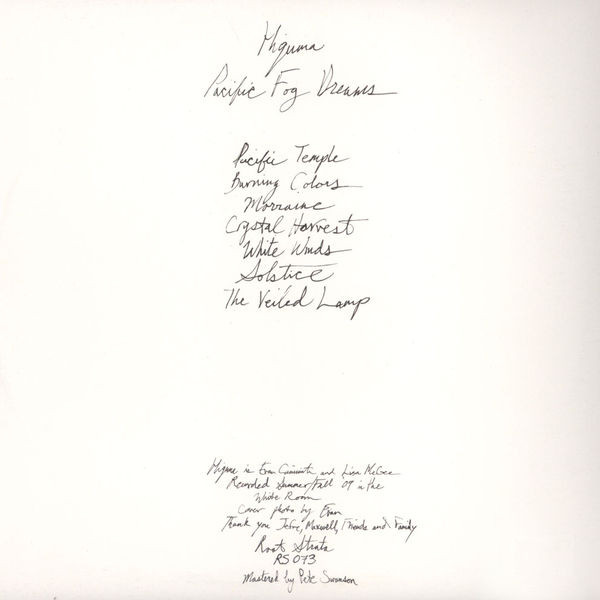 Higuma
Pacific Fog Dreams
Pacific Temple
Burning Colors
Morraine
Crystal Harvest
White Winds
Solstice
The Veiled Lamp
Higuma is Evan Caminiti and Lisa McGee
Recorded Summer/Fall 09 in the
White Room
Cover photo by Evan
Thank you Jefre, Maxwell, Friends and Family
Root Strata
RS073
Mastered by Pete Swanson